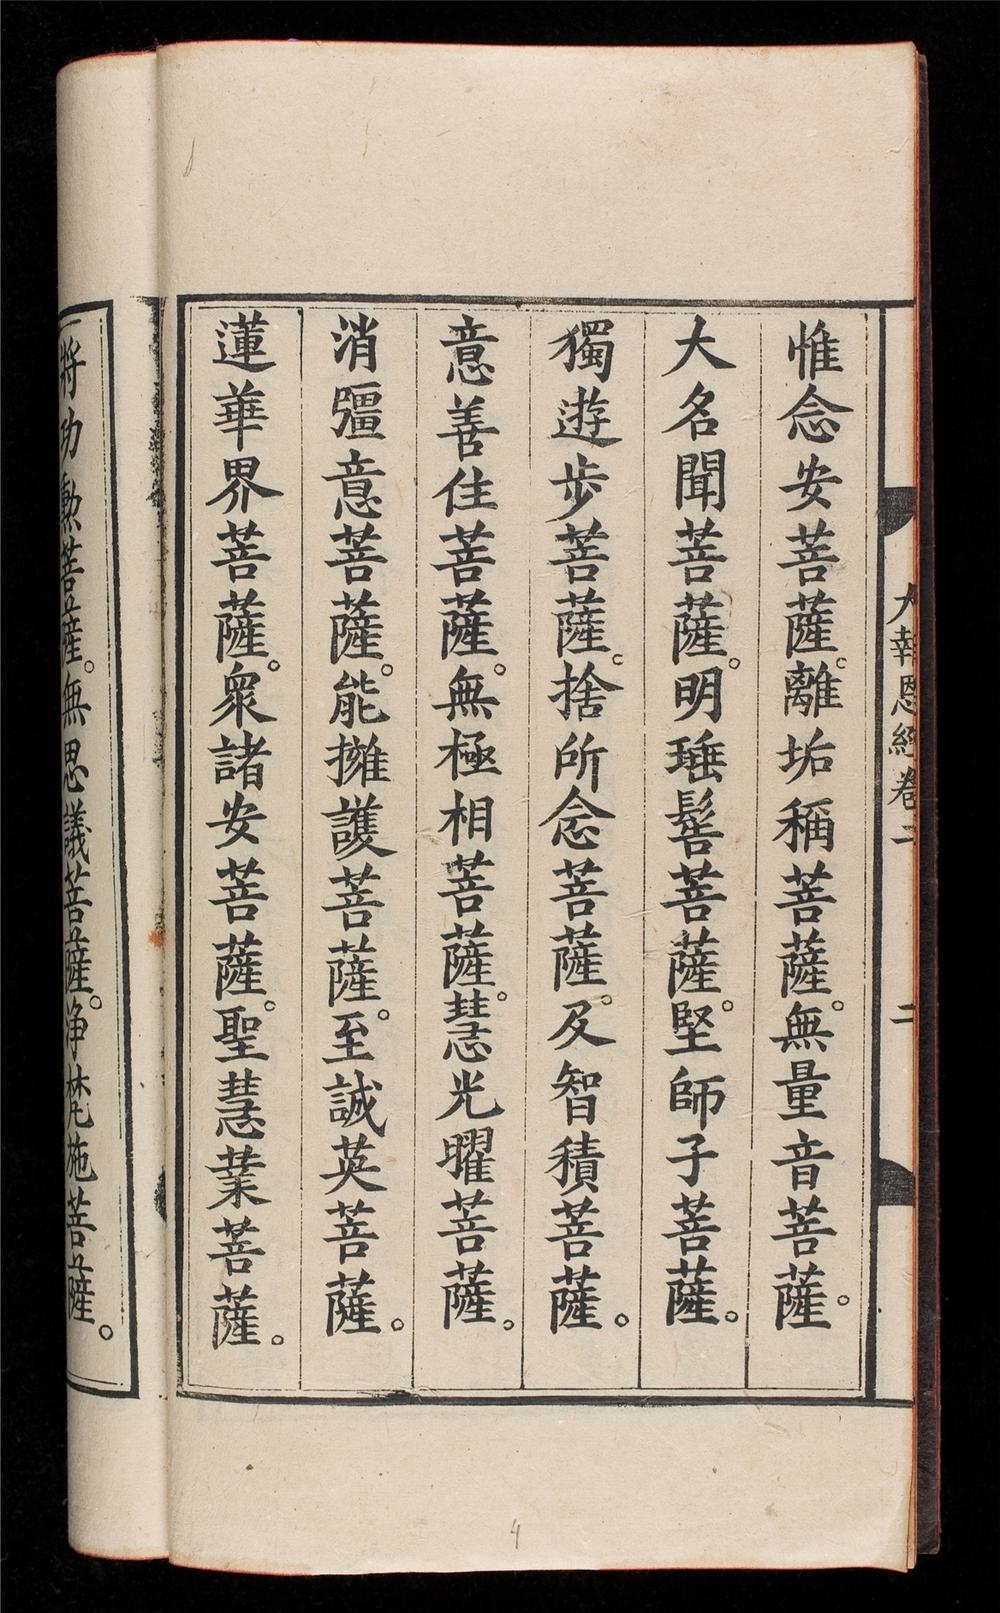 大報恩經卷二
二
惟念安菩薩。離垢稱菩薩。無量音菩薩。
大名聞菩薩。明琿髻菩薩。堅師子菩薩。
獨遊步菩薩。捨所念菩薩。及智積菩薩。
意善住菩薩。無極相菩薩。慧光曜菩薩。
消彊意菩薩。能擁護菩薩。至誠英菩薩。
蓮華界菩薩。衆諸安菩薩。聖慧業菩薩。
將功勲菩薩。無思議菩薩。淨梵施菩薩。
4